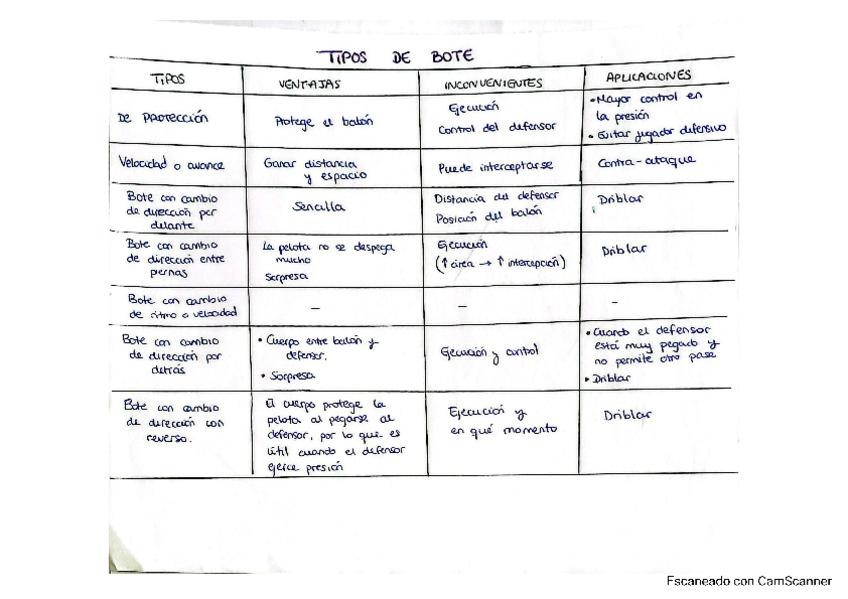 TIPOS DE BOTE
TIPOS
VENTAJAS
INCONVENIENTES
APLICACIONES
DE PROTECCIÓN
Protege el balón
Ejecución
Control del defensor
• Mayor control en
la presión
• Evitar jugador defensivo
Velocidad o avance
Ganar distancia
y espacio
Puede interceptarse
Contra-ataque
Bote con cambio
de dirección por
delante
Sencilla
Distancia del defensor
Posición del balón
Driblar
Bote con cambio
de dirección entre
piernas
La pelota no se despega
mucho
Sorpresa
Ejecución
(↑ área → ↑ intercepción)
Driblar
Bote con cambio
de ritmo o velocidad
–
–
-
Bote con cambio
de dirección por
detrás
• Cuerpo entre balón y
defensor.
• Sorpresa
Ejecución y control
• Cuando el defensor
está muy pegado y
no permite otro pase
• Driblar
Bote con cambio
de dirección con
reverso.
El cuerpo protege la
pelota al pegarse al
defensor, por lo que es
útil cuando el defensor
ejerce presión
Ejecución y
en qué momento
Driblar
Escaneado con CamScanner